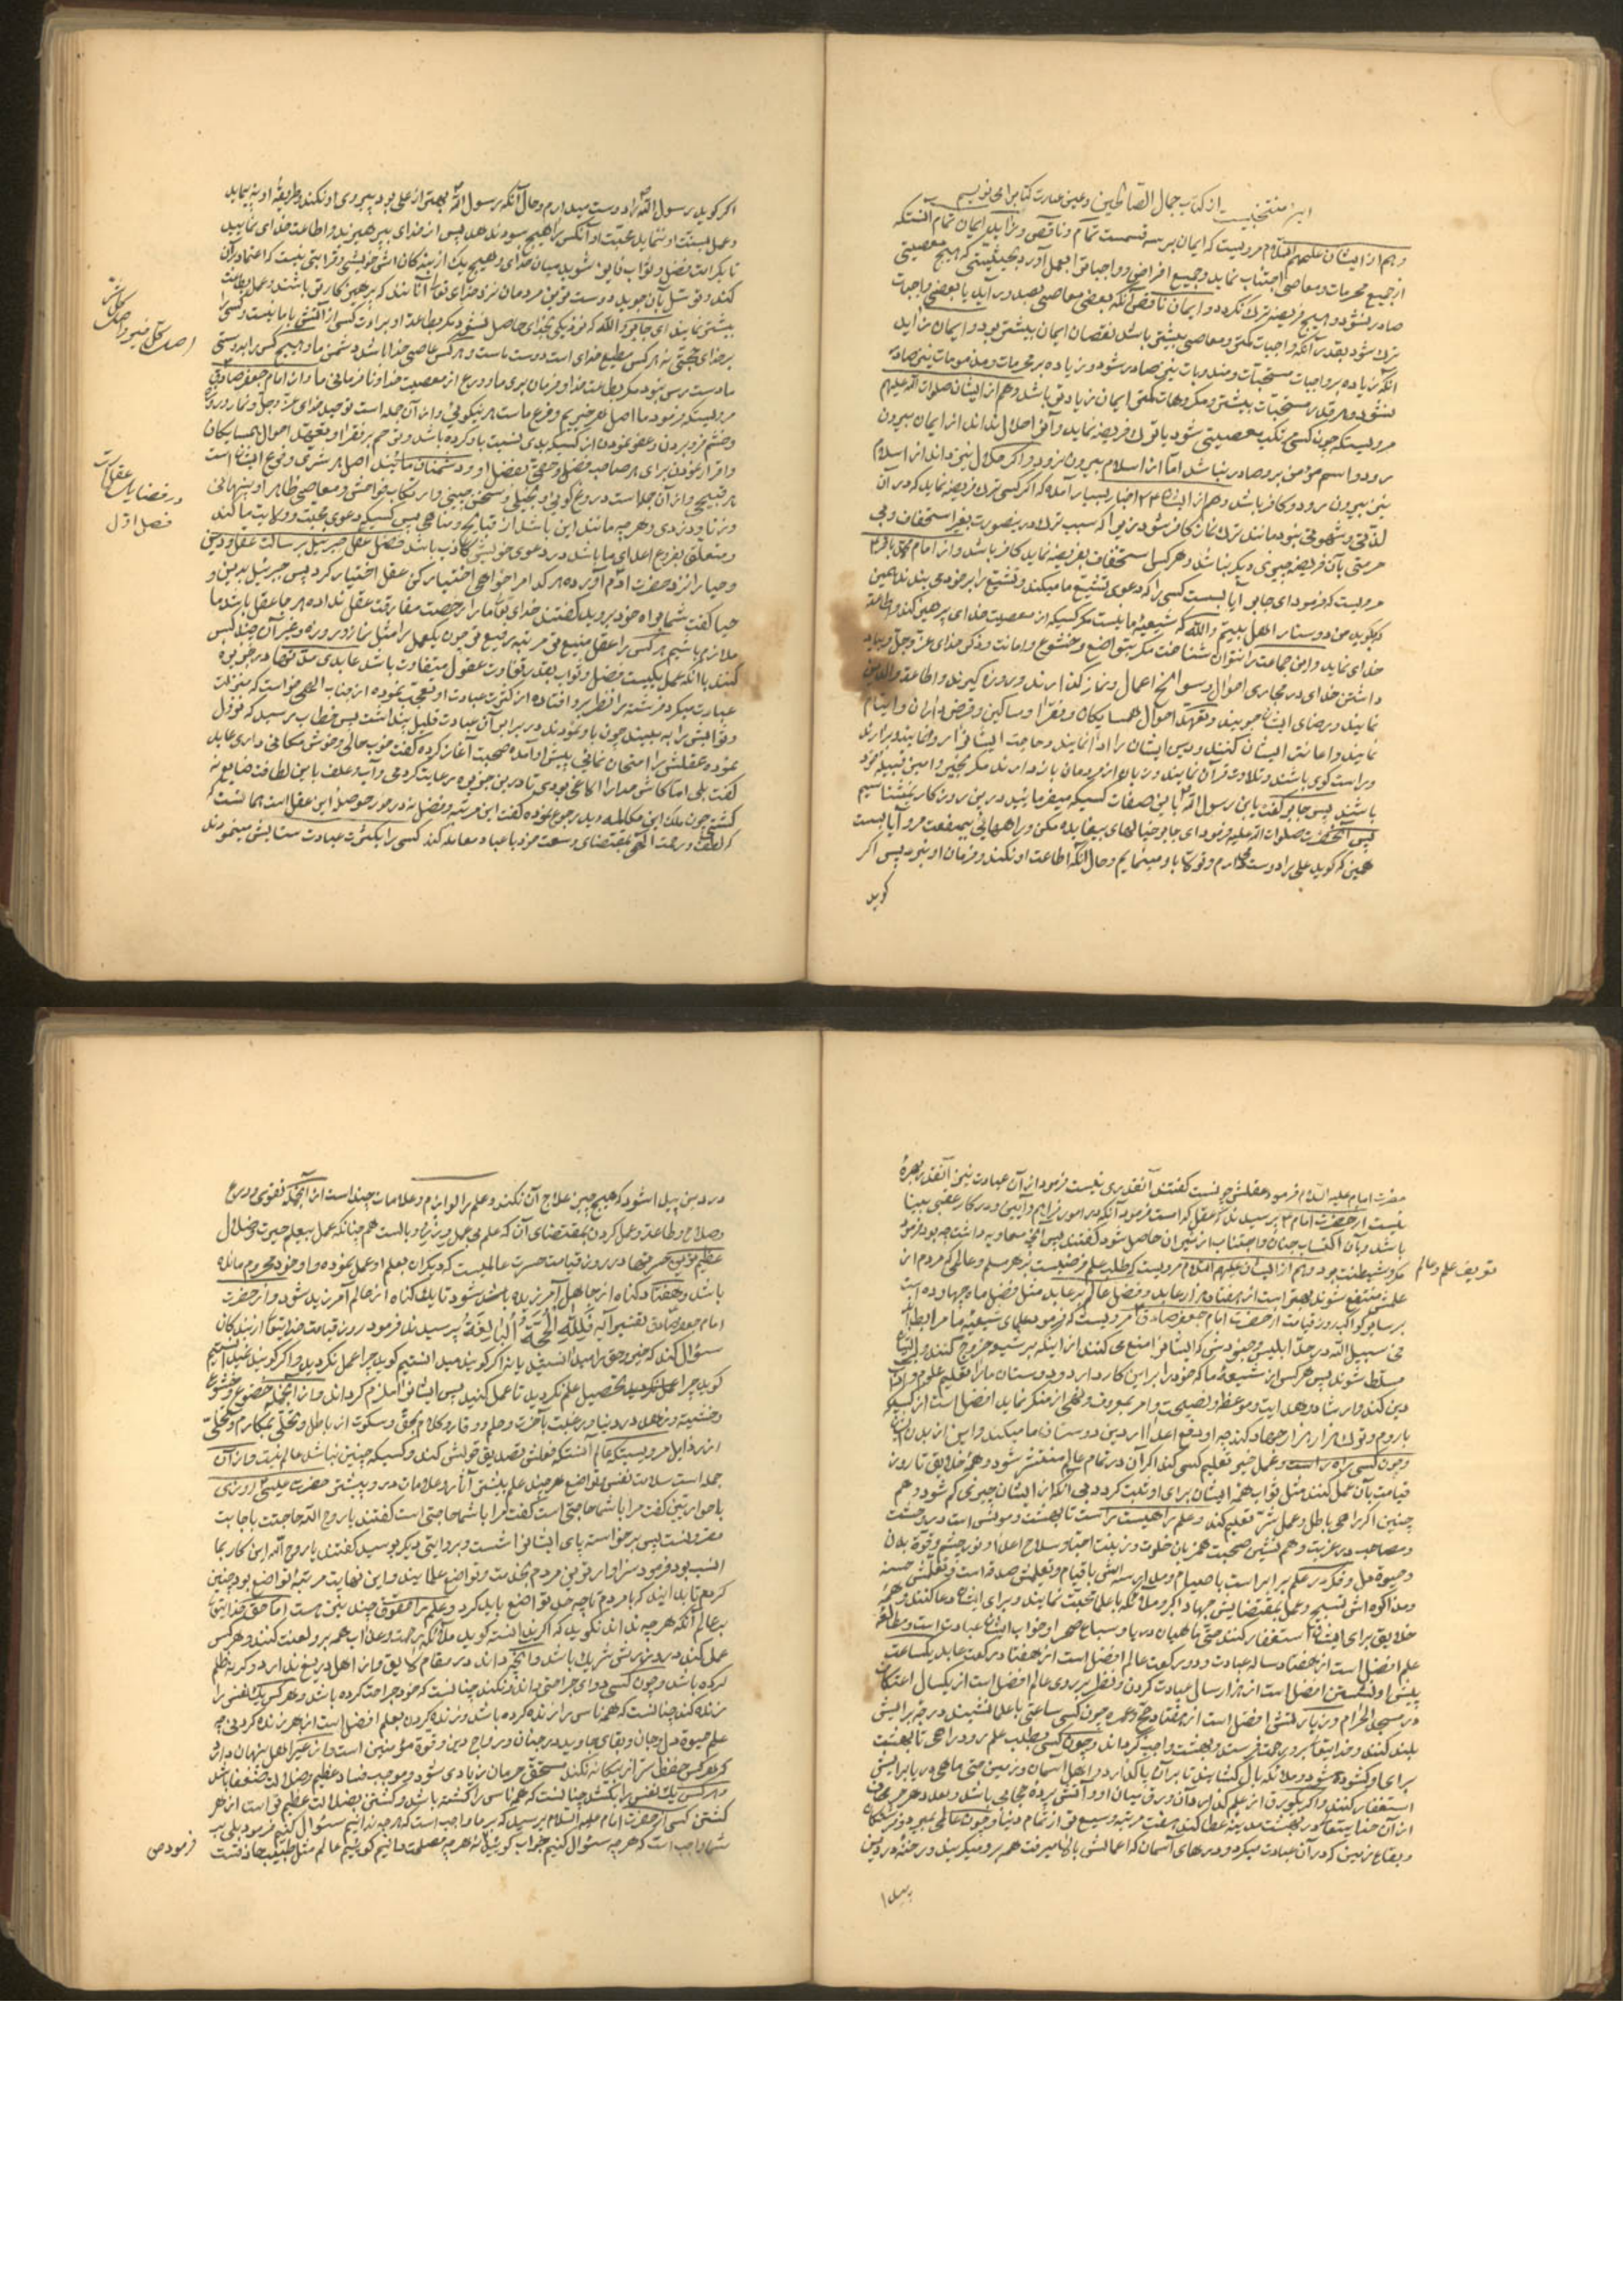 از کتاب جمال الصالحین و عین عبارت کتابرا می نویسم
و هم از ایشان علیهم السلام مرویست که ایمان بر سه قسمست تمام و ناقص و زاید ایمان تمام آنستکه
از جمیع محرمات و معاصی اجتناب نماید و جمیع افراض و واجبات بعمل آورد بحیثیتی که هیچ معصیتی
صادر نشود و هیچ فریضه ترک نگردد و ایمان ناقص آنکه بعضی معاصی بعمل در آید یا بعضی واجبات
ترک شود بقدر آنکه واجبات کمتر و معاصی بیشتر باشد نقصان ایمان بیشتر بود و ایمان زاید
آنکه زیاده بر واجبات مستحبات و مندوبات نیز صادر شود و زیاده بر محرمات و مذمومات نیز صادر
نشود و هر قدر مستحبات بیشتر و مکروهات کمتر ایمان زیادتر باشد و هم از ایشان صلوات الله علیهم
مرویستکه چون کسی مرتکب معصیتی شود یا ترک فریضه نماید از ایمان بیرون
رود و اسم مؤمن برو صادر نباشد اما از اسلام بیرون نرود و اگر حلال نیز داند از اسلام
نیز بیرون رود و کافر باشد و هم از ایشان اخبار بسیار آمده که اگر کسی ترک فریضه نماید که در آن
لذتی و شهوتی نبود مانند ترک نماز کافر شود زیرا که سبب ترک درینصورت بغیر استخفاف و بی
حرمتی بآن فریضه چیزی دیگر نباشد و هر کس استخفاف بفریضه نماید کافر باشد و از امام محمد باقر
مرویست که فرمود ای جابر آیا بست کسی را که دعوی تشیع ما میکند و تشیع را بر خود می بندد همین
که بگوید من دوستار اهل بیتم والله که شیعه ما نیست مگر کسیکه از معصیت خدای پرهیز کند و اطاعت
خدای نماید و این جماعت را نتوان شناخت مگر بتواضع و خشوع و امانت و ذکر خدای عز و جل و بیاد
داشتن خدای در مجاری احوال و سوانح اعمال و نماز گذارند و روزه گیرند و اطاعت والدین
نمایند و رضای ایشان جویند و تعهد احوال همسایگان و فقرا و مساکین و قرض داران و ایتام
نمایند و اعانت ایشان کنند و دین ایشان را ادا نمایند و حاجت ایشان را روا نمایند
و راست گوی باشند و تلاوت قرآن نمایند و زبان از مردمان باز دارند مگر بخیر و امین قبیله خود
باشند پس جابر گفت یابن رسول الله باین صفات کسیکه میفرمائید درین روزگار نمیشناسیم
پس آنحضرت صلوات الله علیه فرمود ای جابر خیالهای بیفایده مکن و براههای بیمنفعت مرو آیا بست
همین که گوید علی را دوست میدارم و تولا باو مینمایم و حال آنکه اطاعت او نکند و فرمان او نبرد پس اگر
گوید
اگر گوید رسول الله را دوست میدارم و حال آنکه رسول الله بهتر از علی بود پیروی او نکند و طریقه او نه پیماید
و عمل بسنت او ننماید محبت او آنکس را هیچ سود ندهد پس از خدای بپرهیزید و اطاعت خدای نمایید
تا بکرامت فضل و ثواب فایز شوید میان خدای و هیچ یک از بندگان خویشی و قرابتی نیست که اعتماد بر آن
کنند و توسل بآن جوید دوست ترین مردمان نزد خدای تعالی آنانند که پرهیز کارتر باشند و عمل بطاعت
بیشتر نمایند ای جابر والله که نزدیکی بخدای حاصل نشود مگر بطاعت او و برات کسی از آتش با ما نیست و کسی را
بر خدای حجتی نه هر کس مطیع خدای است دوست ماست و هر کس عاصی خدا باشد دشمن ما و هیچ کس را بدوستی
ما دسترس نبود مگر بطاعت خدا و فرمان بری ما و ورع از معصیت خدا و نافرمانی ما و از امام جعفر صادق
مرویستکه فرمود ما اصل هر خیریم و فرع ماست هر نیکوئی و از آن جمله است توحید خدای عز و جل و نماز و روزه
و خشم فرو بردن و عفو نمودن از کسیکه بدی نسبت باو کرده باشد و ترحم بر فقرا و تعهد احوال همسایگان
و اقرار نمودن برای هر صاحب فضلی بفضل او و دشمنان ما اصل هر شری و فرع ایشان است
هر قبیحی و از آن جمله است دروغ گوئی و بخیلی و سخن چینی و ارتکاب فواحش و معاصی ظاهر و پنهانی
و زنا و دزدی و هر چه مانند این باشد از قبایح و مناهی پس کسیکه دعوی محبت و ولایت ما کند
و متعلق بفروع اعدای ما باشد در دعوی خویش کاذب باشد فصل عقل جبرئیل برسالت عقل و دین
و حیا را نزد حضرت آدم آورده هر کدام را خواهی اختیار کن عقل اختیار کرد پس جبرئیل بدین و
حیا گفت شما براه خود بروید گفتند خدای تعالی ما را رخصت مفارقت عقل نداده هر جا عقل باشد ما
ملازم باشیم هر کس را عقل منیع تر مرتبه رفیع تر چون یکعمل را مثل نماز و روزه و غیر آن چند کس
کنند با آنکه عمل یکیست فضل و ثواب بقدر تفاوت عقول متفاوت باشد عابدی مدتها در جزیره
عبادت میکرد فرشته را نظر برو افتاده از کثرت عبادت او تعجب نموده از جناب الهی خواست که منزلت
و ثوابش را به بیند چون باو نمودند در برابر آن عبادت قلیل پنداشت پس خطاب رسید که نزول
نموده عقلش را امتحان نمای پیش او آمده صحبت آغاز کرده گفت خوب جائی و خوش مکانی داری عابد
گفت بلی اما کاش خدا را الاغی بودی تا درین جزیره برعایت کردمی و آب و علف باین لطافت ضایع نه
گشتی چون ملک این مکالمه دید رجوع نموده گفت این مرتبه و فضل نه در خور حوصله این عقل است همانست که
که لطف و رحمت الهی بمقتضای وسعت خود با عباد معامله کند کسی را بکثرت عبادت ستایش مینمودند
اصل کل خیر و اصل کل شر
در فضایل عقل است
فصل اول
حضرت امام علیه السلام فرمود عقلش چونست گفتند آنقدری نیست فرمود از آن عبادت نیز آنقدر بهره
نیست از حضرت امام پرسیدند که عقل کدامست فرمود آنکه در امور فراهم و آیین و در کار عقبی بینا
باشد و بآن اکتساب جنان و اجتناب از نیران حاصل شود گفتند پس آنچه معاویه داشت چه بود فرمود
مکر و شیطنت بود و هم از ایشان علیهم السلام مرویست که طلب علم فرضیست بر هر مسلم و عالمی که مردم از
علمش منتفع شوند بهتر است از هفتاد هزار عابد و فضل عالم بر عابد مثل فضل ماه چهارده است
بر سایر کواکب در روز قیامت از حضرت امام جعفر صادق مرویست که فرمود علمای شیعه ما مرابطند
فی سبیل الله در حد ابلیس و جنودش که ایشان را منع می کنند از اینکه بر شیعه خروج کنند
مسلط شوند پس هر کس از شیعه ما که خود را بر این کار دارد و دوستان ما را تعلیم علوم و آداب
دین کند و ارشاد و هدایت و موعظه و نصیحت و امر بمعروف و نهی از منکر نماید افضل است از کسیکه
با روم و ترک هزار هزار جهاد کند چه او دفع اعدا از دین دوستان ما میکند و این از بدن ایشان
و چون کسی راه راست و عمل خیر تعلیم کسی کند اگر آن در تمام عالم منتشر شود و همه خلایق تا روز
قیامت بآن عمل کنند مثل ثواب همه ایشان برای او ثبت گردد بی آنکه از ایشان چیزی کم شود و هم
چنین اگر راهی باطل و عمل شر تعلیم کند و علم راهیست راست تا بهشت و مونس است در وحشت
و مصاحب در غربت و هم نشین صحبت همزبان خلوت و زینت احبا و سلاح اعدا و نور چشم و قوة بدن
و حیوة دل و فکر در علم برابر است با صیام و مدارسه اش با قیام و تعلیمش صدقه است و تعلمش حسنه
و مذاکره اش تسبیح و عمل بمقتضایش جهاد اکبر و ملائکه با علما محبت نمایند و برای ایشان دعا کنند و همه
خلایق برای ایشان استغفار کنند حتی ماهیان دریا و سباع صحرا و خواب ایشان عبادت است و مطالعه
علم افضل است از هفتاد ساله عبادت و دو رکعت عالم افضل است از هفتاد رکعت عابد یکساعت
پیش او نشستن افضل است از هزار سال عبادت کردن و نظر بر روی عالم افضل است از یکسال اعتکاف
در مسجد الحرام و زیارتش افضل است از هفتاد حج و عمره چون کسی ساعتی با علما نشیند درجه برایش
بلند کنند و خدایتعالی برو رحمت فرستد و بهشت واجب گرداند و چون کسی بطلب علم رود راهی تا بهشت
برای او گشوده شود و ملائکه بال گشایند تا بر آن پا گذارد و اهل آسمان و زمین حتی ماهی دریا برایش
استغفار کنند و اگر یکورق از علم گذارد آن ورق میان او و آتش پرده حجابی باشد و بعدد هر حرفی
از آن خدایتعالی در بهشت مدینه عطا کند هفت مرتبه وسیع تر از تمام دنیا و چون عالمی بمیرد فرشتگان
و بقاع زمین که در آن عبادت میکرد و درهای آسمان که اعمالش بآنها میرفت همه برو میگریند و رخنه در دین
پیدا
تعریف علم و عالم
در دین پیدا شود که هیچ چیز علاج آن نکند و علم را لوازم و علامات چند است از آنجمله تقوی و ورع
و صلاح و طاعت و عمل کردن بمقتضای آن که علم بی عمل وزر و وبالست هم چنانکه عمل بیعلم حیرت و ضلال
عظیم ترین حسرتها در روز قیامت حسرت عالمیست که دیگران بعلم او عمل نموده و او خود محروم مانده
باشد و هفتاد گناه از جاهل آمرزیده باشد شود تا یک گناه از عالم آمرزیده شود و از حضرت
امام جعفر صادق تفسیر آیه فلله الحجة البالغة پرسیدند فرمود روز قیامت خدایتعالی از بندگان
سئوال کند که خیر و حق را میدانستید یا نه اگر گویند میدانستیم گوید چرا عمل نکردید و اگر گویند نمیدانستیم
گوید چرا تحصیل علم نکردید تا عمل کنید پس ایشان را ملزم گرداند و از آنجمله خضوع و خشوع
و خشیت و زهد در دنیا و رغبت بآخرت و حلم و وقار و کلام بحق و سکوت از باطل و تحلی بمکارم و تخلی
از رذایل مرویستکه عالم آنستکه فعلش تصدیق قولش کند و کسیکه چنین نباشد عالم نیست و از آن
جمله است سلامت نفس و تواضع هر چند علم بیشتر آثار و علامات درو بیشتر حضرت عیسی روزی
با حواریین گفت مرا با شما حاجتی است گفتند یا روح الله حاجتت باجابت
مقرونست پس برخواسته پای ایشان را شست و بروایتی دیگر بوسید گفتند یا روح الله این کار بما
انسب بود فرمود سزاوارترین مردم بخدمت و تواضع علمایند و این نهایت مرتبه تواضع بود چنین
کردم تا بدانید که با مردم تا چه حد تواضع باید کرد و علم را حقوق چند نیز هست اما حق خدایتعالی
بر عالم آنکه هر چه نداند نگوید که اگر ندانسته گوید ملائکه رحمت و عذاب همه برو لعنت کنند و هر کس
عمل کند در وزرش شریک باشد و آنچه داند در مقام لایق و از اهل دریغ ندارد و گرنه ظلم
کرده باشد و چون کسی دوای جراحتی داند و نکند چنانست که خود جراحت کرده باشد و هر کس یک نفس را
زنده کند چنانست که همه ناس را زنده کرده باشد و زنده کردن بعلم افضل است از هر زنده کردنی چه
علم حیوة دل و جان و بقای جاوید در جنان و رواج دین و قوة مؤمنین است و از غیر اهل پنهان دارد
که هر کس حفظ سر از بیگانه نکند مستحق حرمان زیادی شود و موجب فساد عظیم و ضلالت ضعفا باشد
و هر کس یک نفس را بکشد چنانست که همه ناس را کشته باشد و کشتن بضلالت عظیم تر است از هر
کشتن کسی از حضرت امام علیه السلام پرسید که بر ما واجب است که هر چه ندانیم سئوال کنیم فرمود بلی بر
شما واجب است که هر چه سئوال کنیم جواب گویید نه هر چه مصلحت دانیم گوئیم عالم مثل طبیب حاذقست
فرمود من